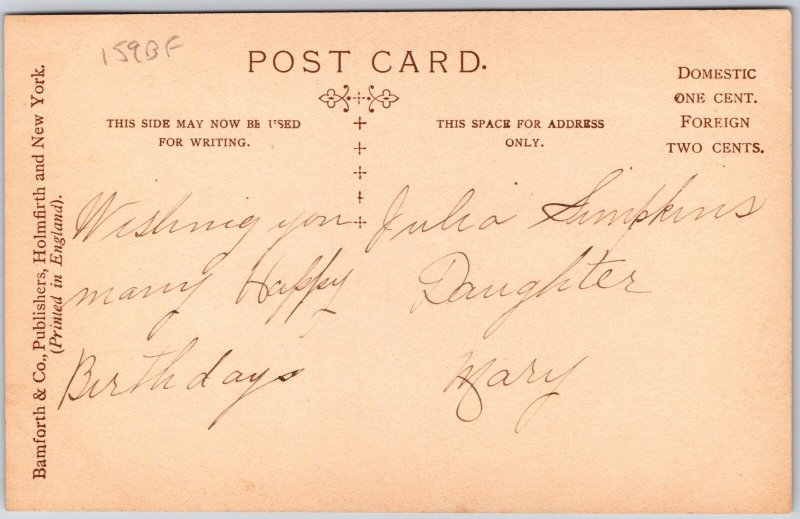 159BF
POST CARD.
DOMESTIC
ONE CENT.
FOREIGN
TWO CENTS.
THIS SIDE MAY NOW BE USED
FOR WRITING.
THIS SPACE FOR ADDRESS
ONLY.
Bamforth & Co., Publishers, Holmfirth and New York.
(Printed in England).
Wishing you
many Happy
Birthdays
Julia Simpkins
Daughter
Mary